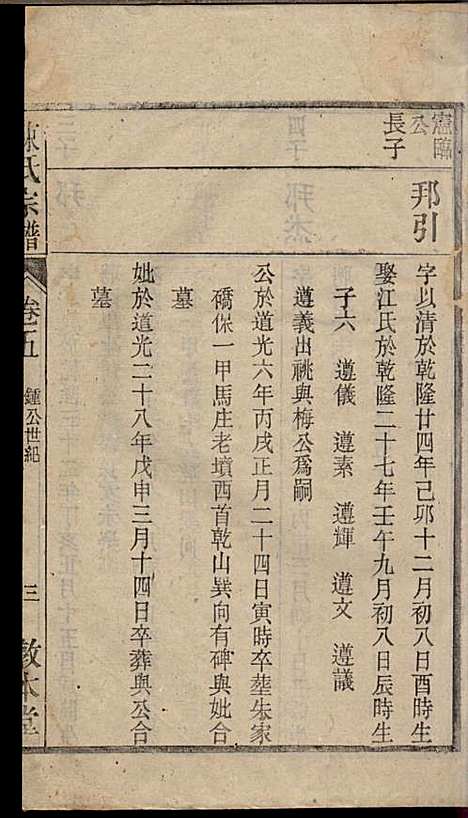 憲臨公長子
邦引
字以清於乾隆廿四年己卯十二月初八日酉時生
娶江氏於乾隆二十七年壬午九月初八日辰時生
子六 遵儀 遵素 遵輝 遵文 遵議
遵義出祧與梅公爲嗣
公於道光六年丙戌正月二十四日寅時卒塟朱家
礄保一甲馬庄老墳西首乾山巽向有碑與妣合
墓
妣於道光二十八年戊申三月十四日卒葬與公合
墓
陳氏宗譜
卷五 鍾公世紀
三 敦本堂